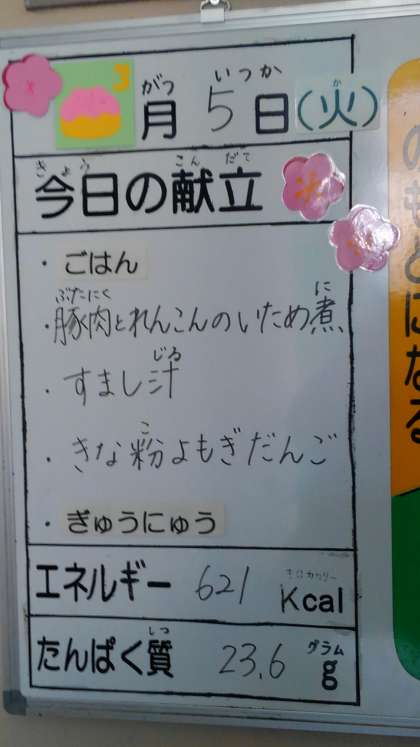 3月5日(火)
がつ いつか か
今日の献立
きょう こんだて
・ごはん
ぶたにく に
・豚肉とれんこんのいため煮
じる
・すまし汁
こ
・きな粉よもぎだんご
・ぎゅうにゅう
エネルギー 621 Kcal
キロカロリー
たんぱく質 23.6 g
しつ グラム
のもとになる